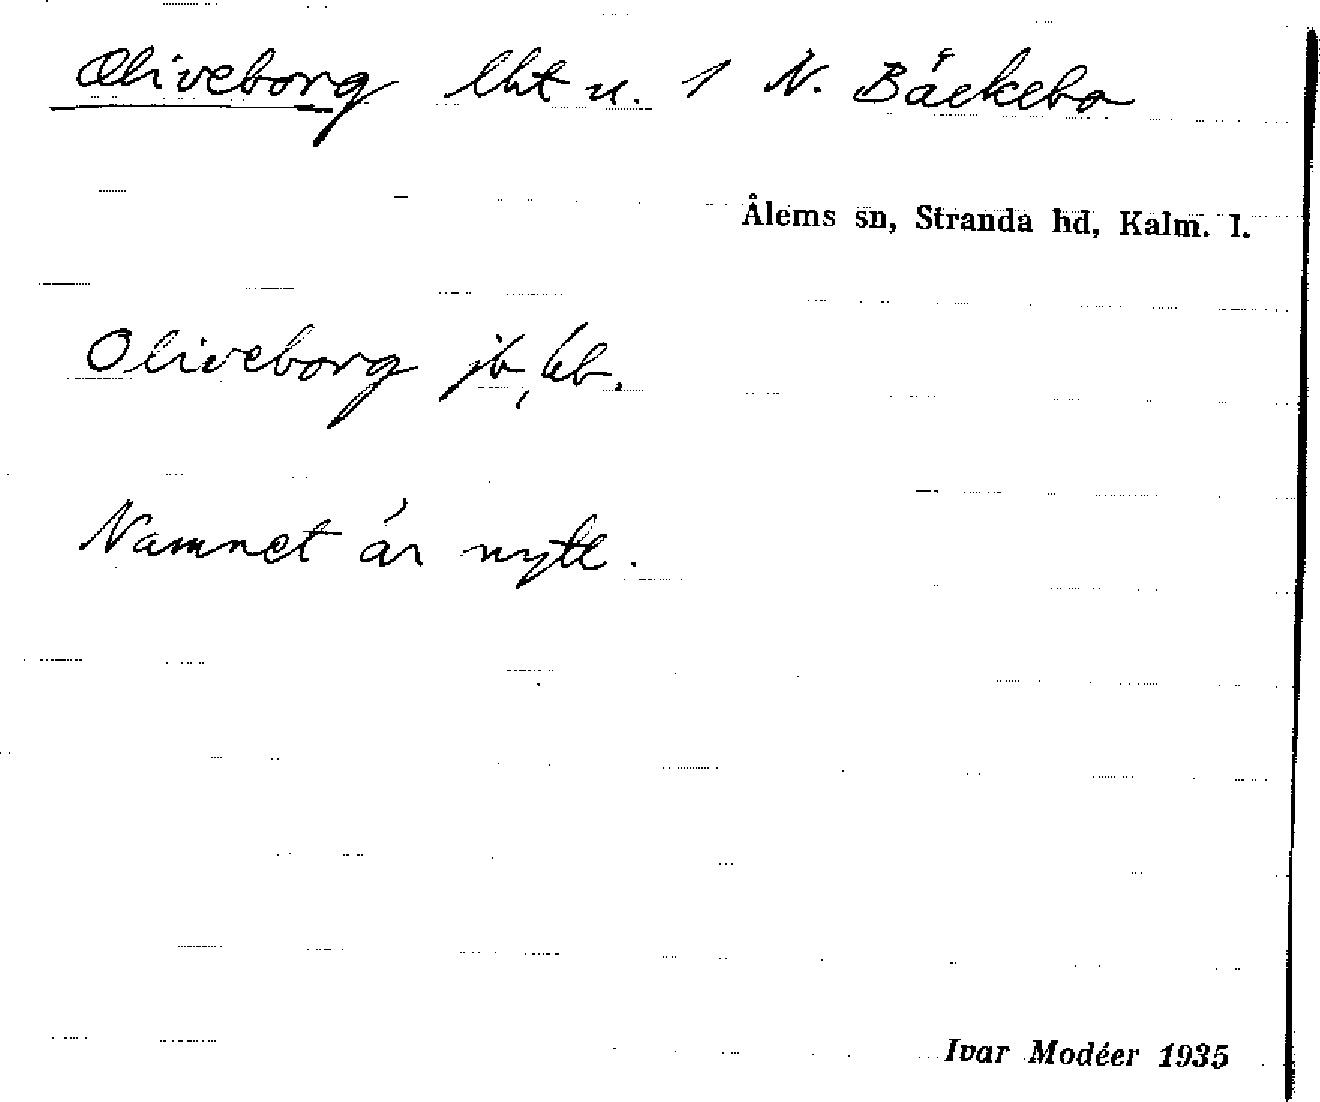 Oliveborg lht u. 1 N. Bäckebo
Ålems sn, Stranda hd, Kalm. l.
Oliveborg jb, kb.
Namnet är nytt.
Ivar Modéer 1935